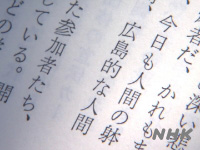 者だ、深い悲
、今日も人間の躰
かれもち
広島的な人間
た参加者たち、
している。開
どの
NHK